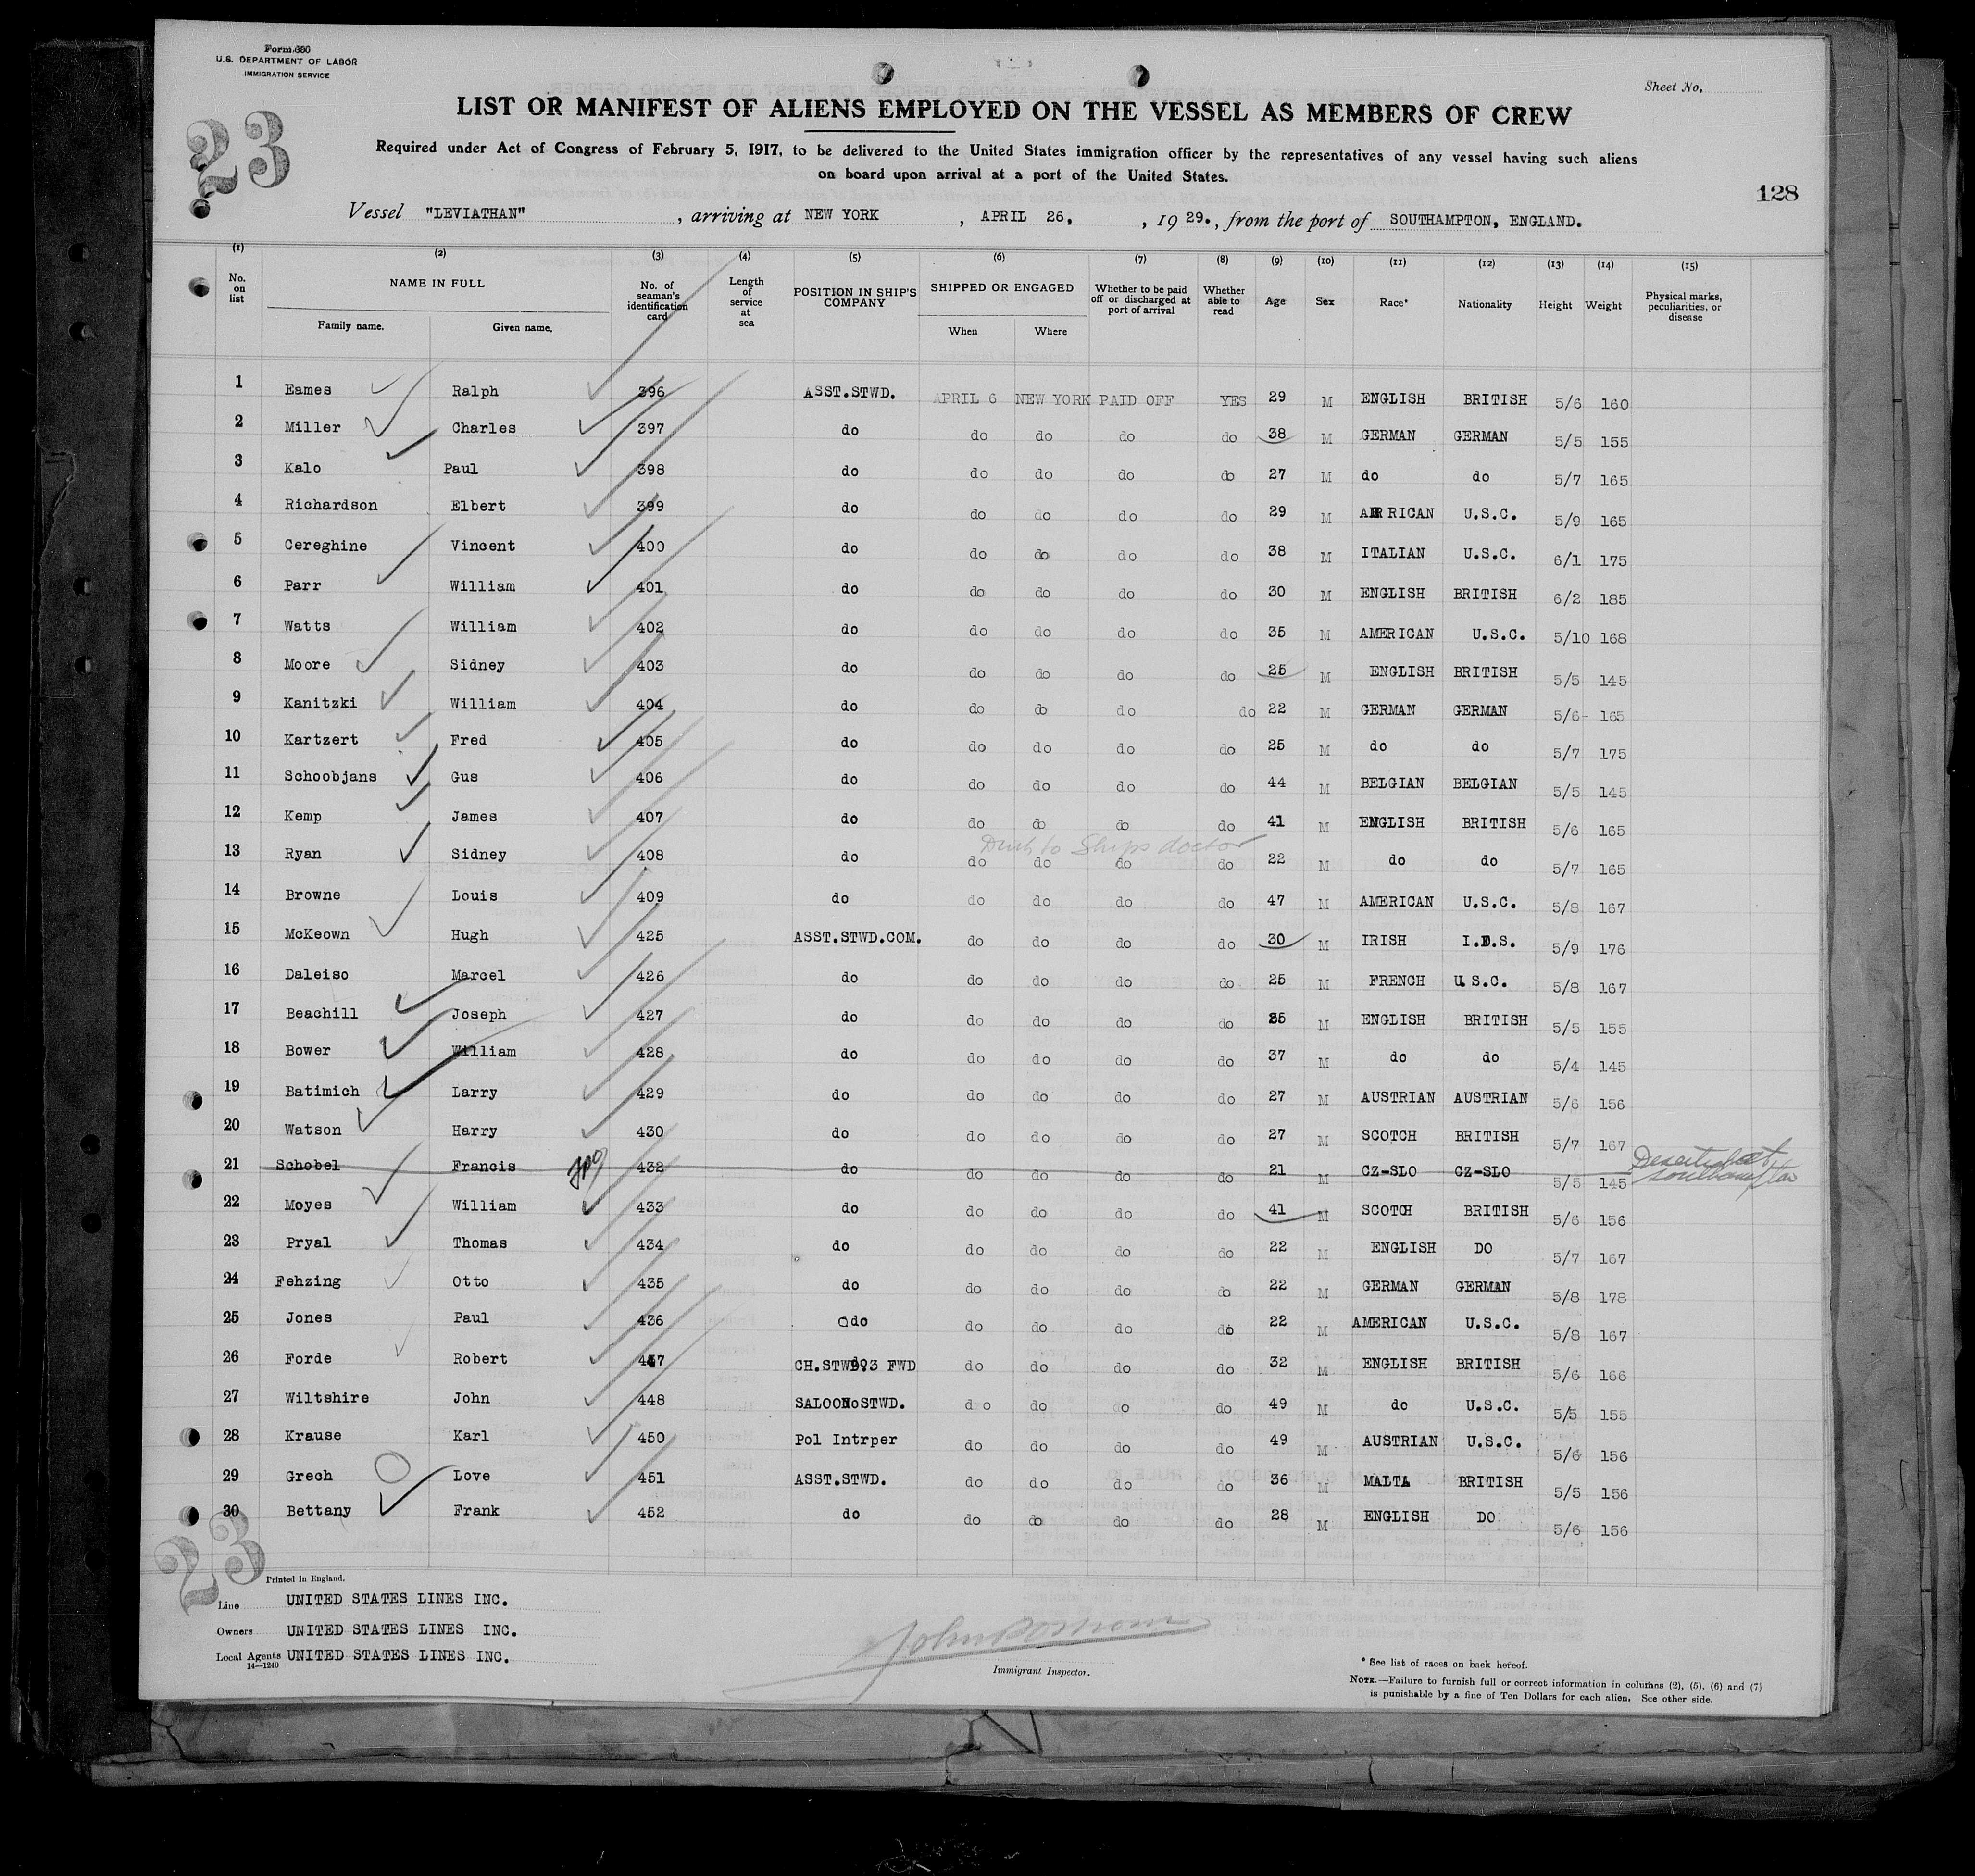 Form 680
U.S. DEPARTMENT OF LABOR
IMMIGRATION SERVICE
Sheet No.
23
LIST OR MANIFEST OF ALIENS EMPLOYED ON THE VESSEL AS MEMBERS OF CREW
Required under Act of Congress of February 5, 1917, to be delivered to the United States immigration officer by the representatives of any vessel having such aliens
on board upon arrival at a port of the United States.
128
Vessel "LEVIATHAN" , arriving at NEW YORK , APRIL 26, , 19 29. , from the port of SOUTHAMPTON, ENGLAND.
(1) (2) (3) (4) (5) (6) (7) (8) (9) (10) (11) (12) (13) (14) (15)
No. on list NAME IN FULL Family name. Given name. No. of seaman's identification card Length of service at sea POSITION IN SHIP'S COMPANY SHIPPED OR ENGAGED When Where Whether to be paid off or discharged at port of arrival Whether able to read Age Sex Race* Nationality Height Weight Physical marks, peculiarities, or disease
1 Eames Ralph 396 ASST.STWD. APRIL 6 NEW YORK PAID OFF YES 29 M ENGLISH BRITISH 5/6 160
2 Miller Charles 397 do do do do do 38 M GERMAN GERMAN 5/5 155
3 Kalo Paul 398 do do do do do 27 M do do 5/7 165
4 Richardson Elbert 399 do do do do do 29 M RICAN U.S.C. 5/9 165
5 Cereghine Vincent 400 do do do do do 38 M ITALIAN U.S.C. 6/1 175
6 Parr William 401 do do do do do 30 M ENGLISH BRITISH 6/2 185
7 Watts William 402 do do do do do 35 M AMERICAN U.S.C. 5/10 168
8 Moore Sidney 403 do do do do do 25 M ENGLISH BRITISH 5/5 145
9 Kanitzki William 404 do do do do do 22 M GERMAN GERMAN 5/6 165
10 Kartzert Fred 405 do do do do do 25 M do do 5/7 175
11 Schoobjans Gus 406 do do do do do 44 M BELGIAN BELGIAN 5/5 145
12 Kemp James 407 do do do do do 41 M ENGLISH BRITISH 5/6 165
to Ships doctor
13 Ryan Sidney 408 do do do do do 22 M do do 5/7 165
14 Browne Louis 409 do do do do do 47 M AMERICAN U.S.C. 5/8 167
15 McKeown Hugh 425 ASST.STWD.COM. do do do do 30 M IRISH 5/9 176
16 Daleiso Marcel 426 do do do do do 25 M FRENCH U.S.C. 5/8 167
17 Beachill Joseph 427 do do do do do M ENGLISH BRITISH 5/5 155
18 Bower William 428 do do do do do 37 M do do 5/4 145
19 Batimich Larry 429 do do do do do 27 M AUSTRIAN AUSTRIAN 5/6 156
20 Watson Harry 430 do do do do do 27 M SCOTCH BRITISH 5/7 167
21 Schobel Francis 432 do do do do do 21 M CZ-SLO CZ-SLO 5/5 145 Deserted at Southampton
22 Moyes William 433 do do do do do 41 M SCOTCH BRITISH 5/6 156
23 Pryal Thomas 434 do do do do do 22 M ENGLISH DO 5/7 167
24 Fehzing Otto 435 do do do do do 22 M GERMAN GERMAN 5/8 178
25 Jones Paul 436 do do do do do 22 M AMERICAN U.S.C. 5/8 167
26 Forde Robert CH.STWD.3 FWD do do do do 32 M ENGLISH BRITISH 5/6 166
27 Wiltshire John 448 SALOON STWD. do do do do 49 M do U.S.C. 5/5 155
28 Krause Karl 450 Pol Intrper do do do do 49 M AUSTRIAN U.S.C. 5/6 156
29 Grech Love 451 ASST.STWD. do do do do 36 M MALTA BRITISH 5/5 156
30 Bettany Frank 452 do do do do do 28 M ENGLISH DO 5/6 156
23
Printed in England.
Line UNITED STATES LINES INC.
Owners UNITED STATES LINES INC.
Local Agents UNITED STATES LINES INC.
14—1240
Immigrant Inspector.
* See list of races on back hereof.
NOTE.—Failure to furnish full or correct information in columns (2), (5), (6) and (7)
is punishable by a fine of Ten Dollars for each alien. See other side.